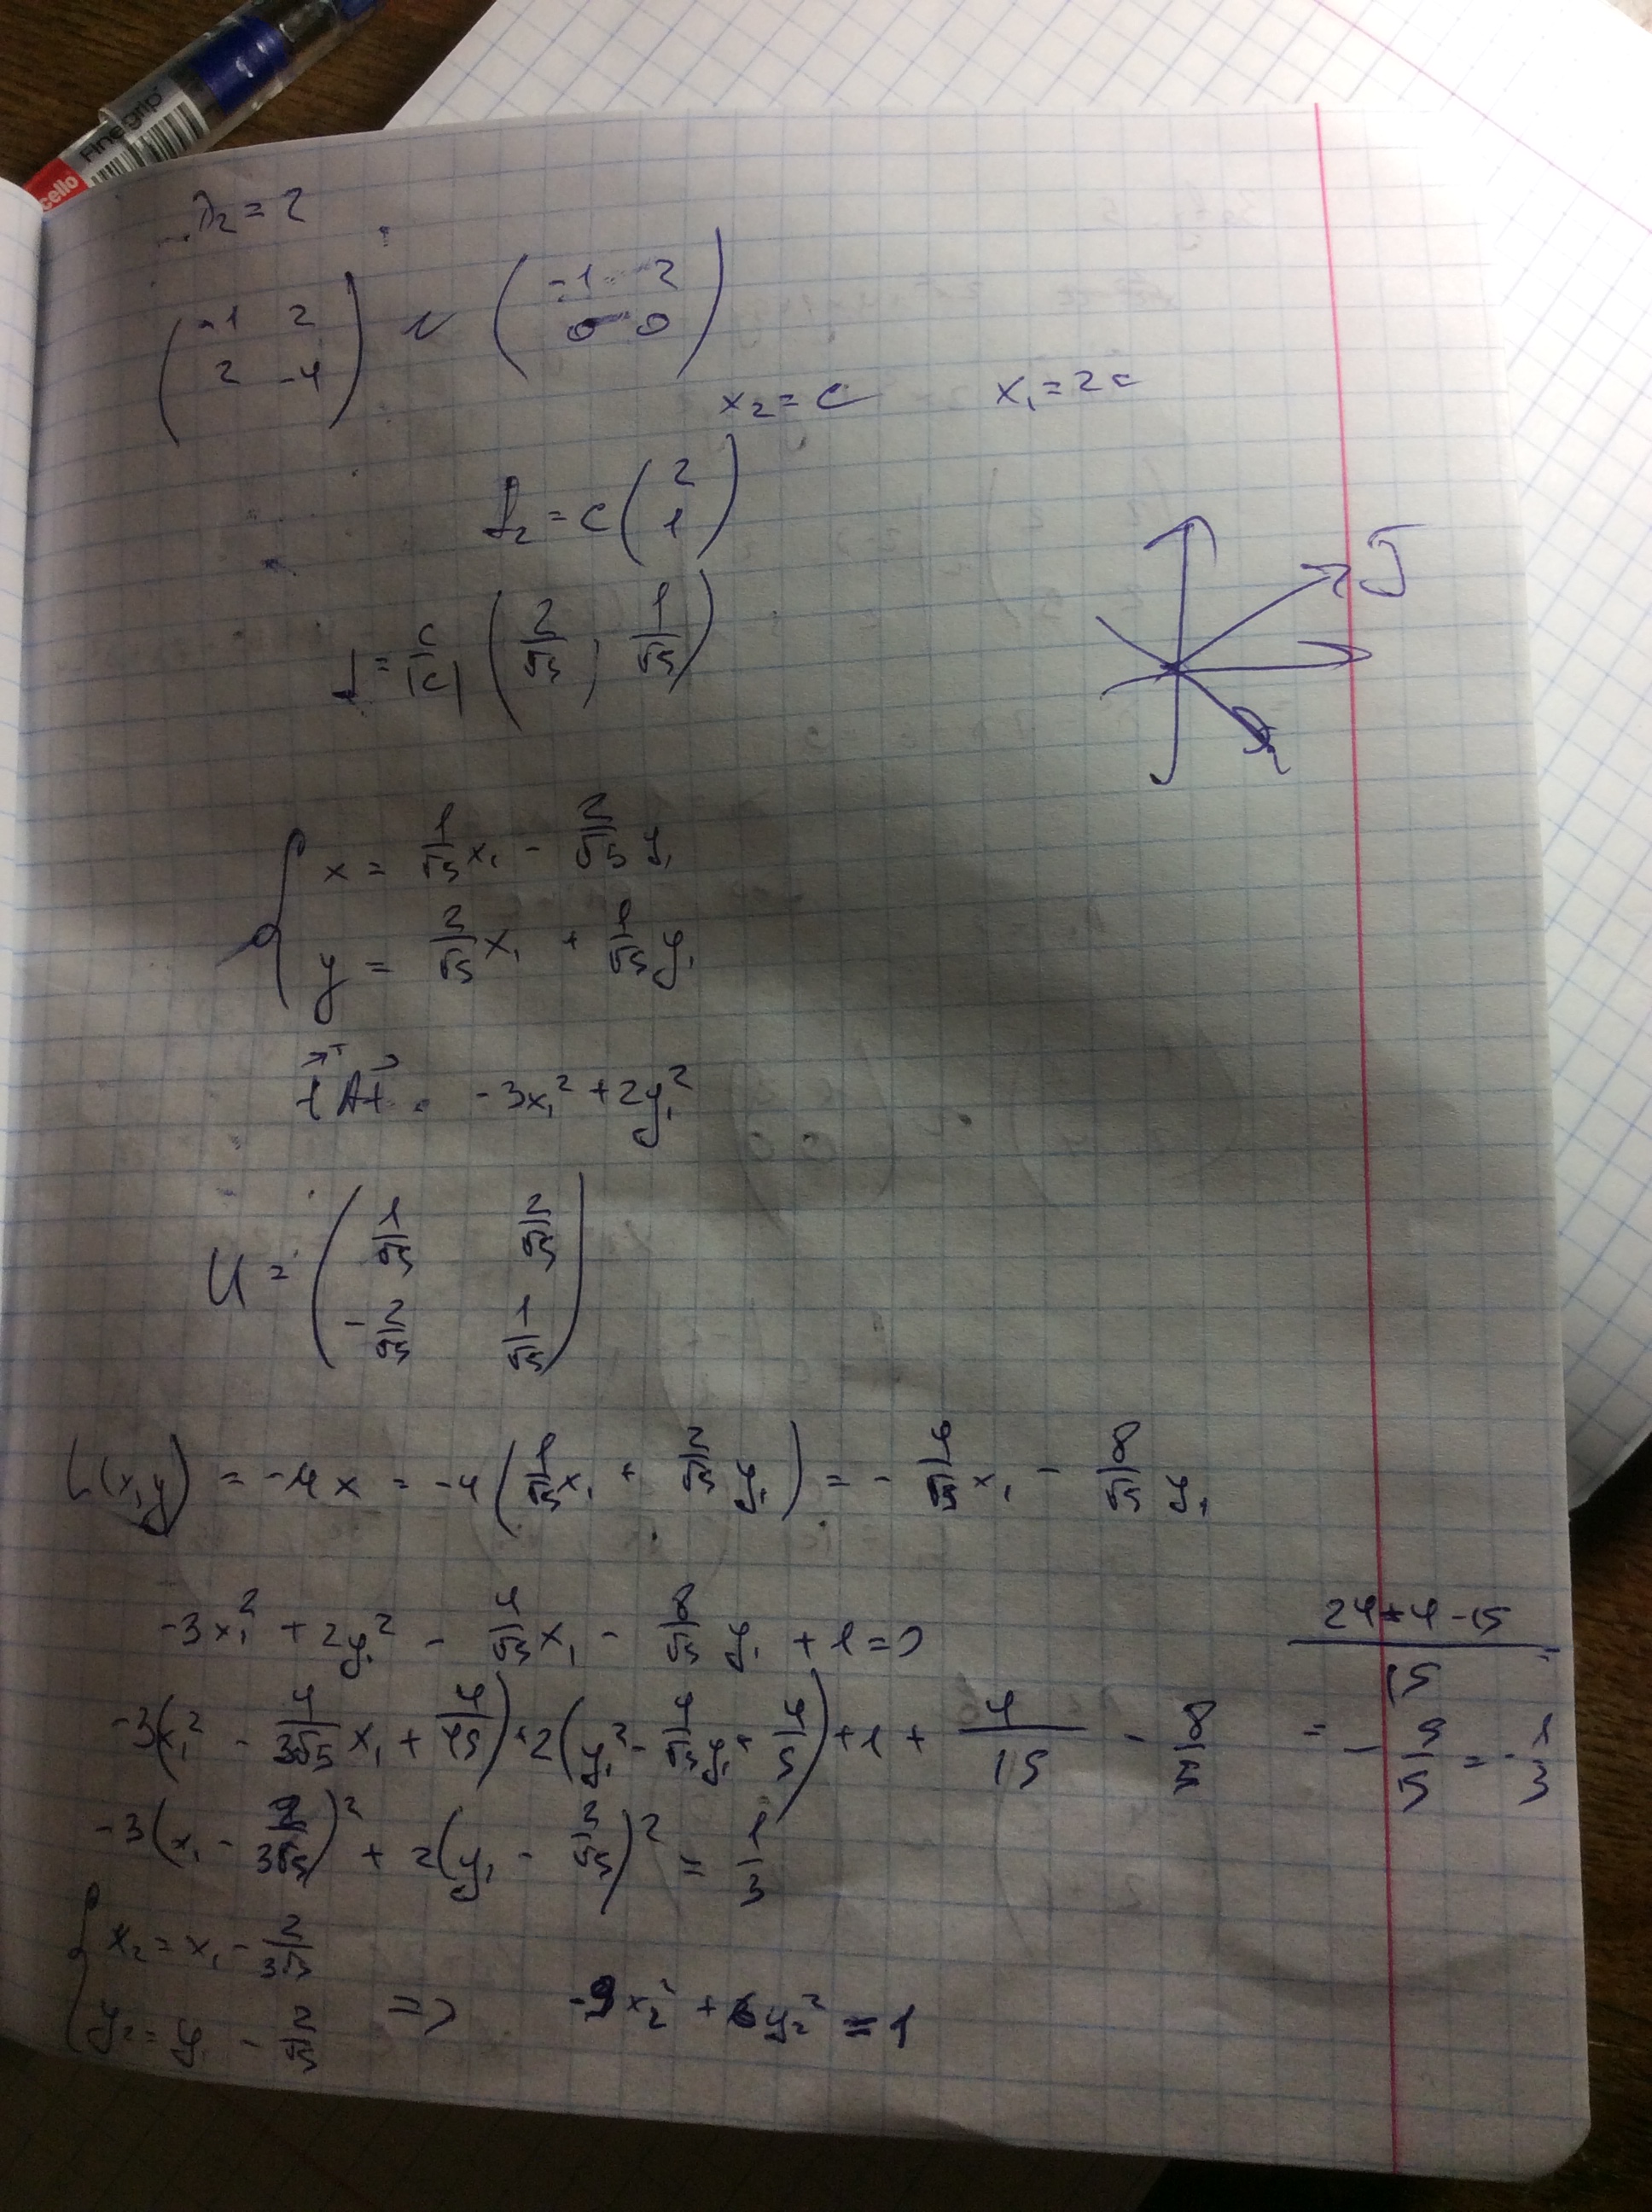 cello Finegrip
λ₂ = 2
( -1 2 ; 2 -4 ) ~ ( -1 2 ; 0 0 )
x₂ = c x₁ = 2c
f₂ = c ( 2 ; 1 )
f = c/|c| ( 2/√5 , 1/√5 )
{ x = 1/√5 x₁ - 2/√5 y₁
y = 2/√5 x₁ + 1/√5 y₁
-3x₁² + 2y₁²
U = ( 1/√5 2/√5 ; -2/√5 1/√5 )
L(x,y) = -4x = -4 ( 1/√5 x₁ + 2/√5 y₁ ) = - 4/√5 x₁ - 8/√5 y₁
-3x₁² + 2y₁² - 4/√5 x₁ - 8/√5 y₁ + 1 = 0
(24+4-15)/15 =
-3(x₁² - 4/(3√5) x₁ + 4/45) + 2(y₁² - 4/√5 y₁ + 4/5) + 1 + 4/15 - 8/5 = - 5/15 = - 1/3
-3(x₁ - 2/(3√5))² + 2(y₁ - 2/√5)² = 1/3
{ x₂ = x₁ - 2/(3√5)
y₂ = y₁ - 2/√5 => -9x₂² + 6y₂² = 1